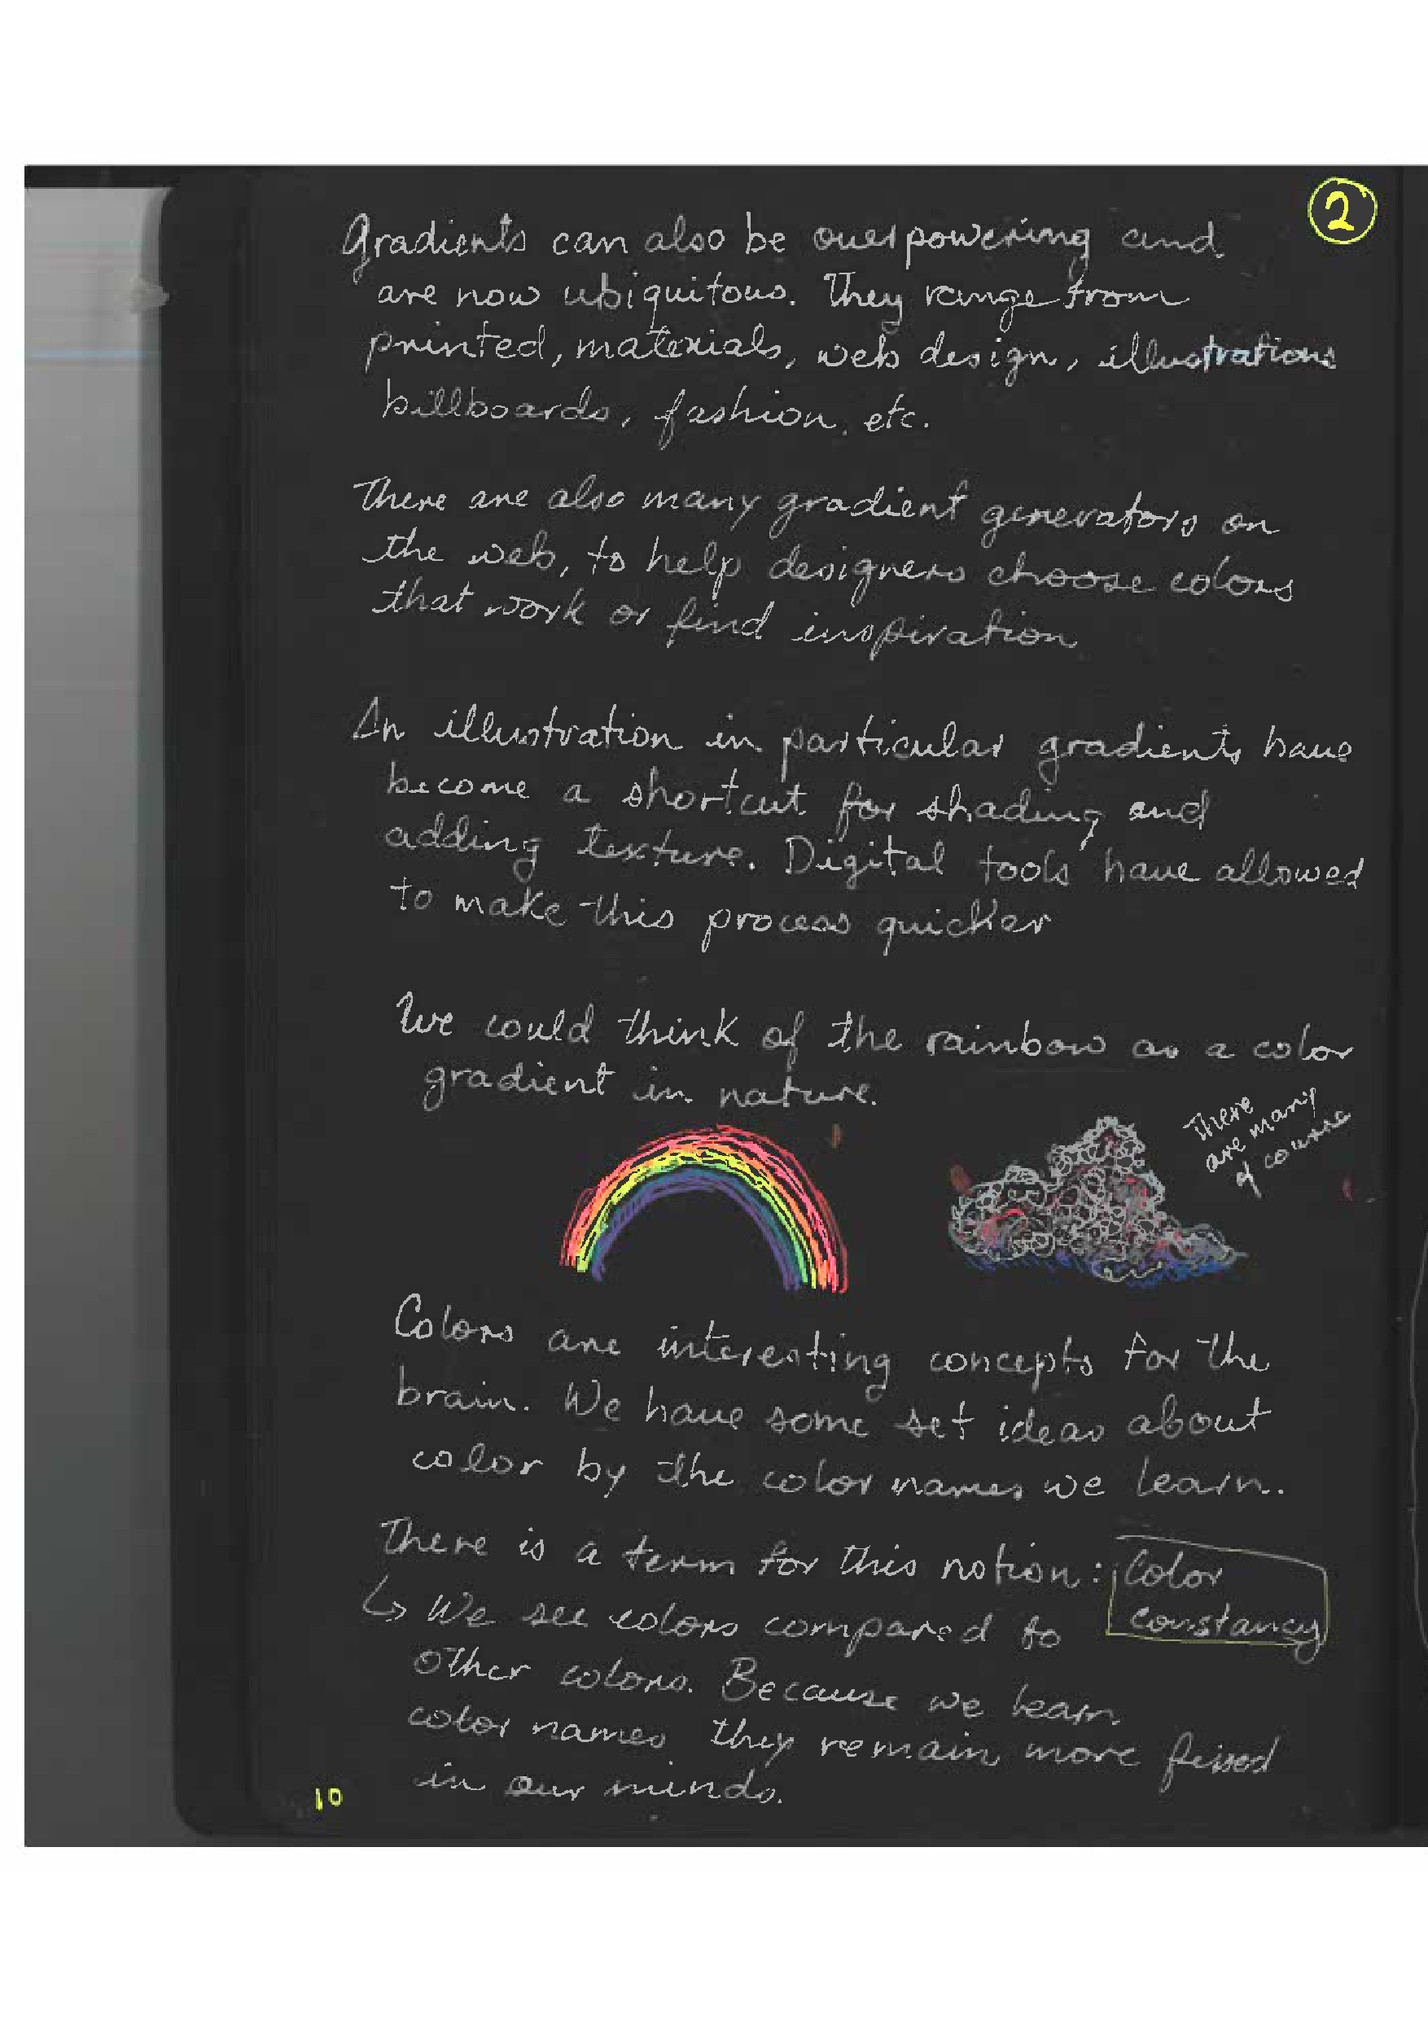 2
Gradients can also be overpowering and
are now ubiquitous. They range from
printed, materials, web design, illustrations
billboards, fashion, etc.
There are also many gradient generators on
the web, to help designers choose colors
that work or find inspiration
In illustration in particular gradients have
become a shortcut for shading and
adding texture. Digital tools have allowed
to make this process quicker
We could think of the rainbow as a color
gradient in nature.
There
are many
of course
Colors are interesting concepts for the
brain. We have some set ideas about
color by the color names we learn.
There is a term for this notion: Color
constancy
↳ We see colors compared to
other colors. Because we learn
color names they remain more fixed
in our minds.
10